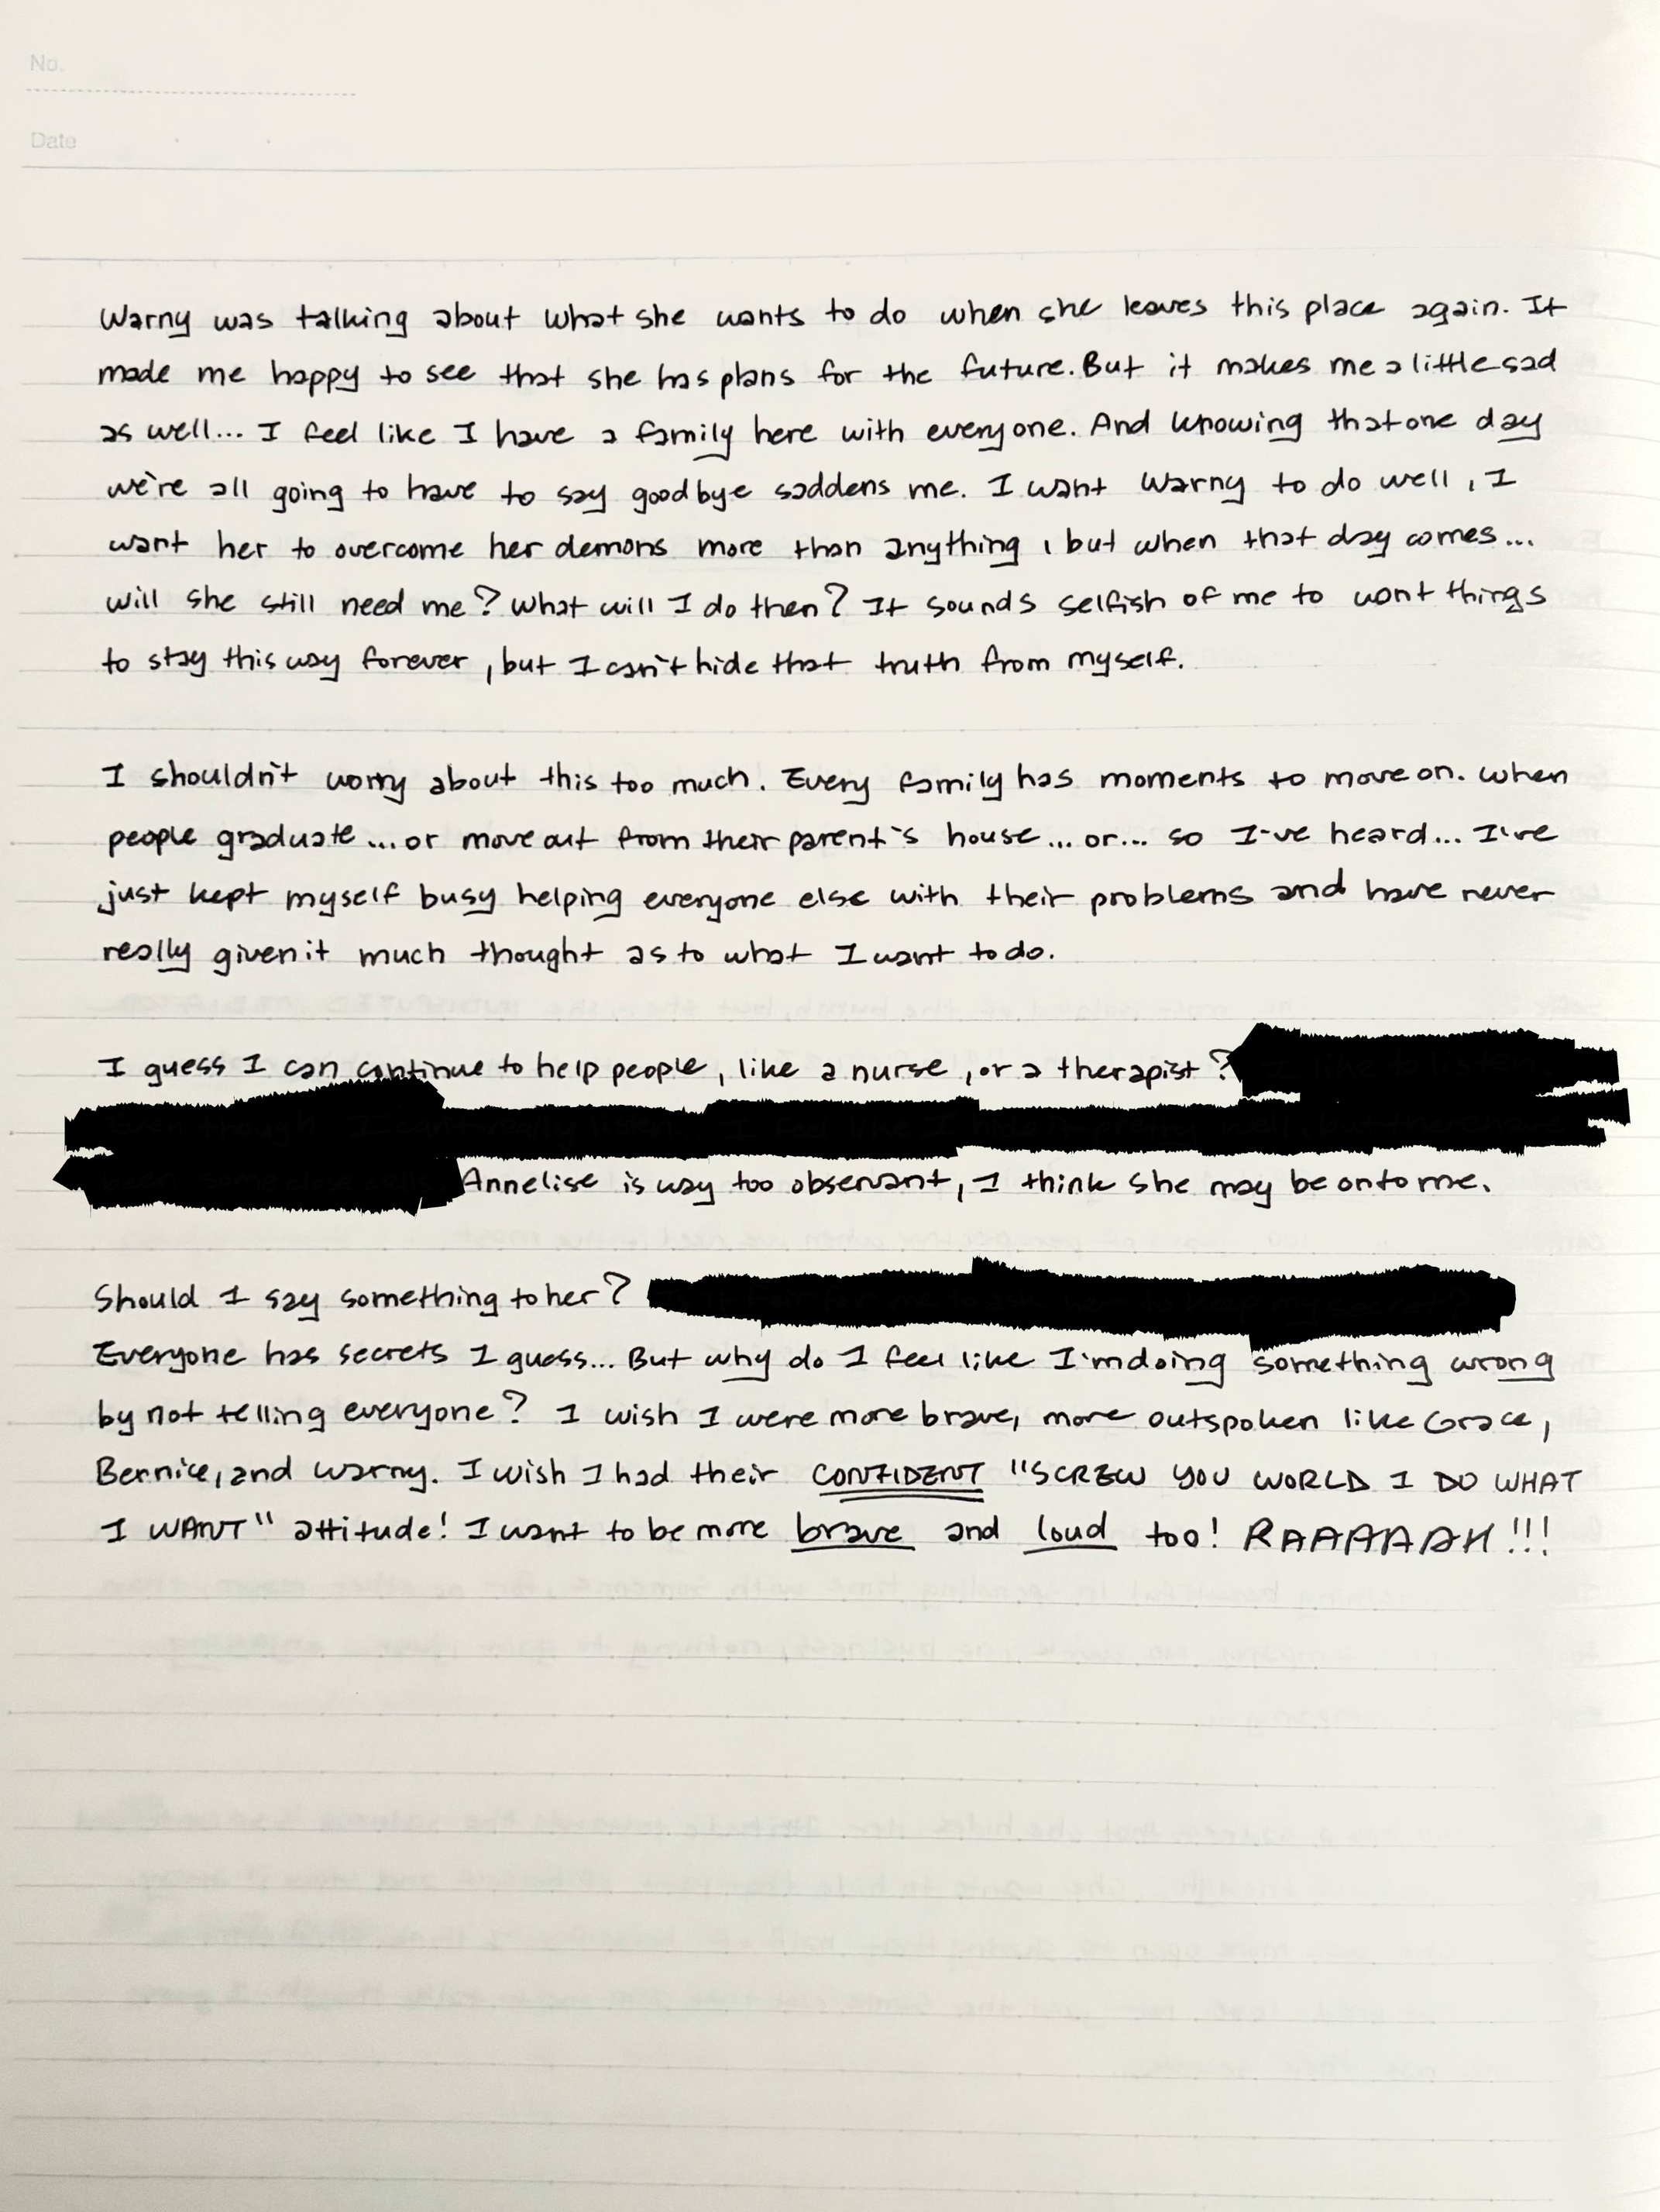 No.
Date
Warny was talking about what she wants to do when she leaves this place again. It
made me happy to see that she has plans for the future. But it makes me a little sad
as well... I feel like I have a family here with everyone. And knowing that one day
we're all going to have to say goodbye saddens me. I want Warny to do well, I
want her to overcome her demons more than anything, but when that day comes...
will she still need me? What will I do then? It sounds selfish of me to want things
to stay this way forever, but I can't hide that truth from myself.
I shouldn't worry about this too much. Every family has moments to move on. When
people graduate... or move out from their parent's house... or... so I've heard... I've
just kept myself busy helping everyone else with their problems and have never
really given it much thought as to what I want to do.
I guess I can continue to help people, like a nurse, or a therapist?
Annelise is way too observant, I think she may be onto me.
Should I say something to her?
Everyone has secrets I guess... But why do I feel like I'm doing something wrong
by not telling everyone? I wish I were more brave, more outspoken like Grace,
Bernice, and Warny. I wish I had their CONFIDENT "SCREW YOU WORLD I DO WHAT
I WANT" attitude! I want to be more brave and loud too! RAAAAAAH!!!